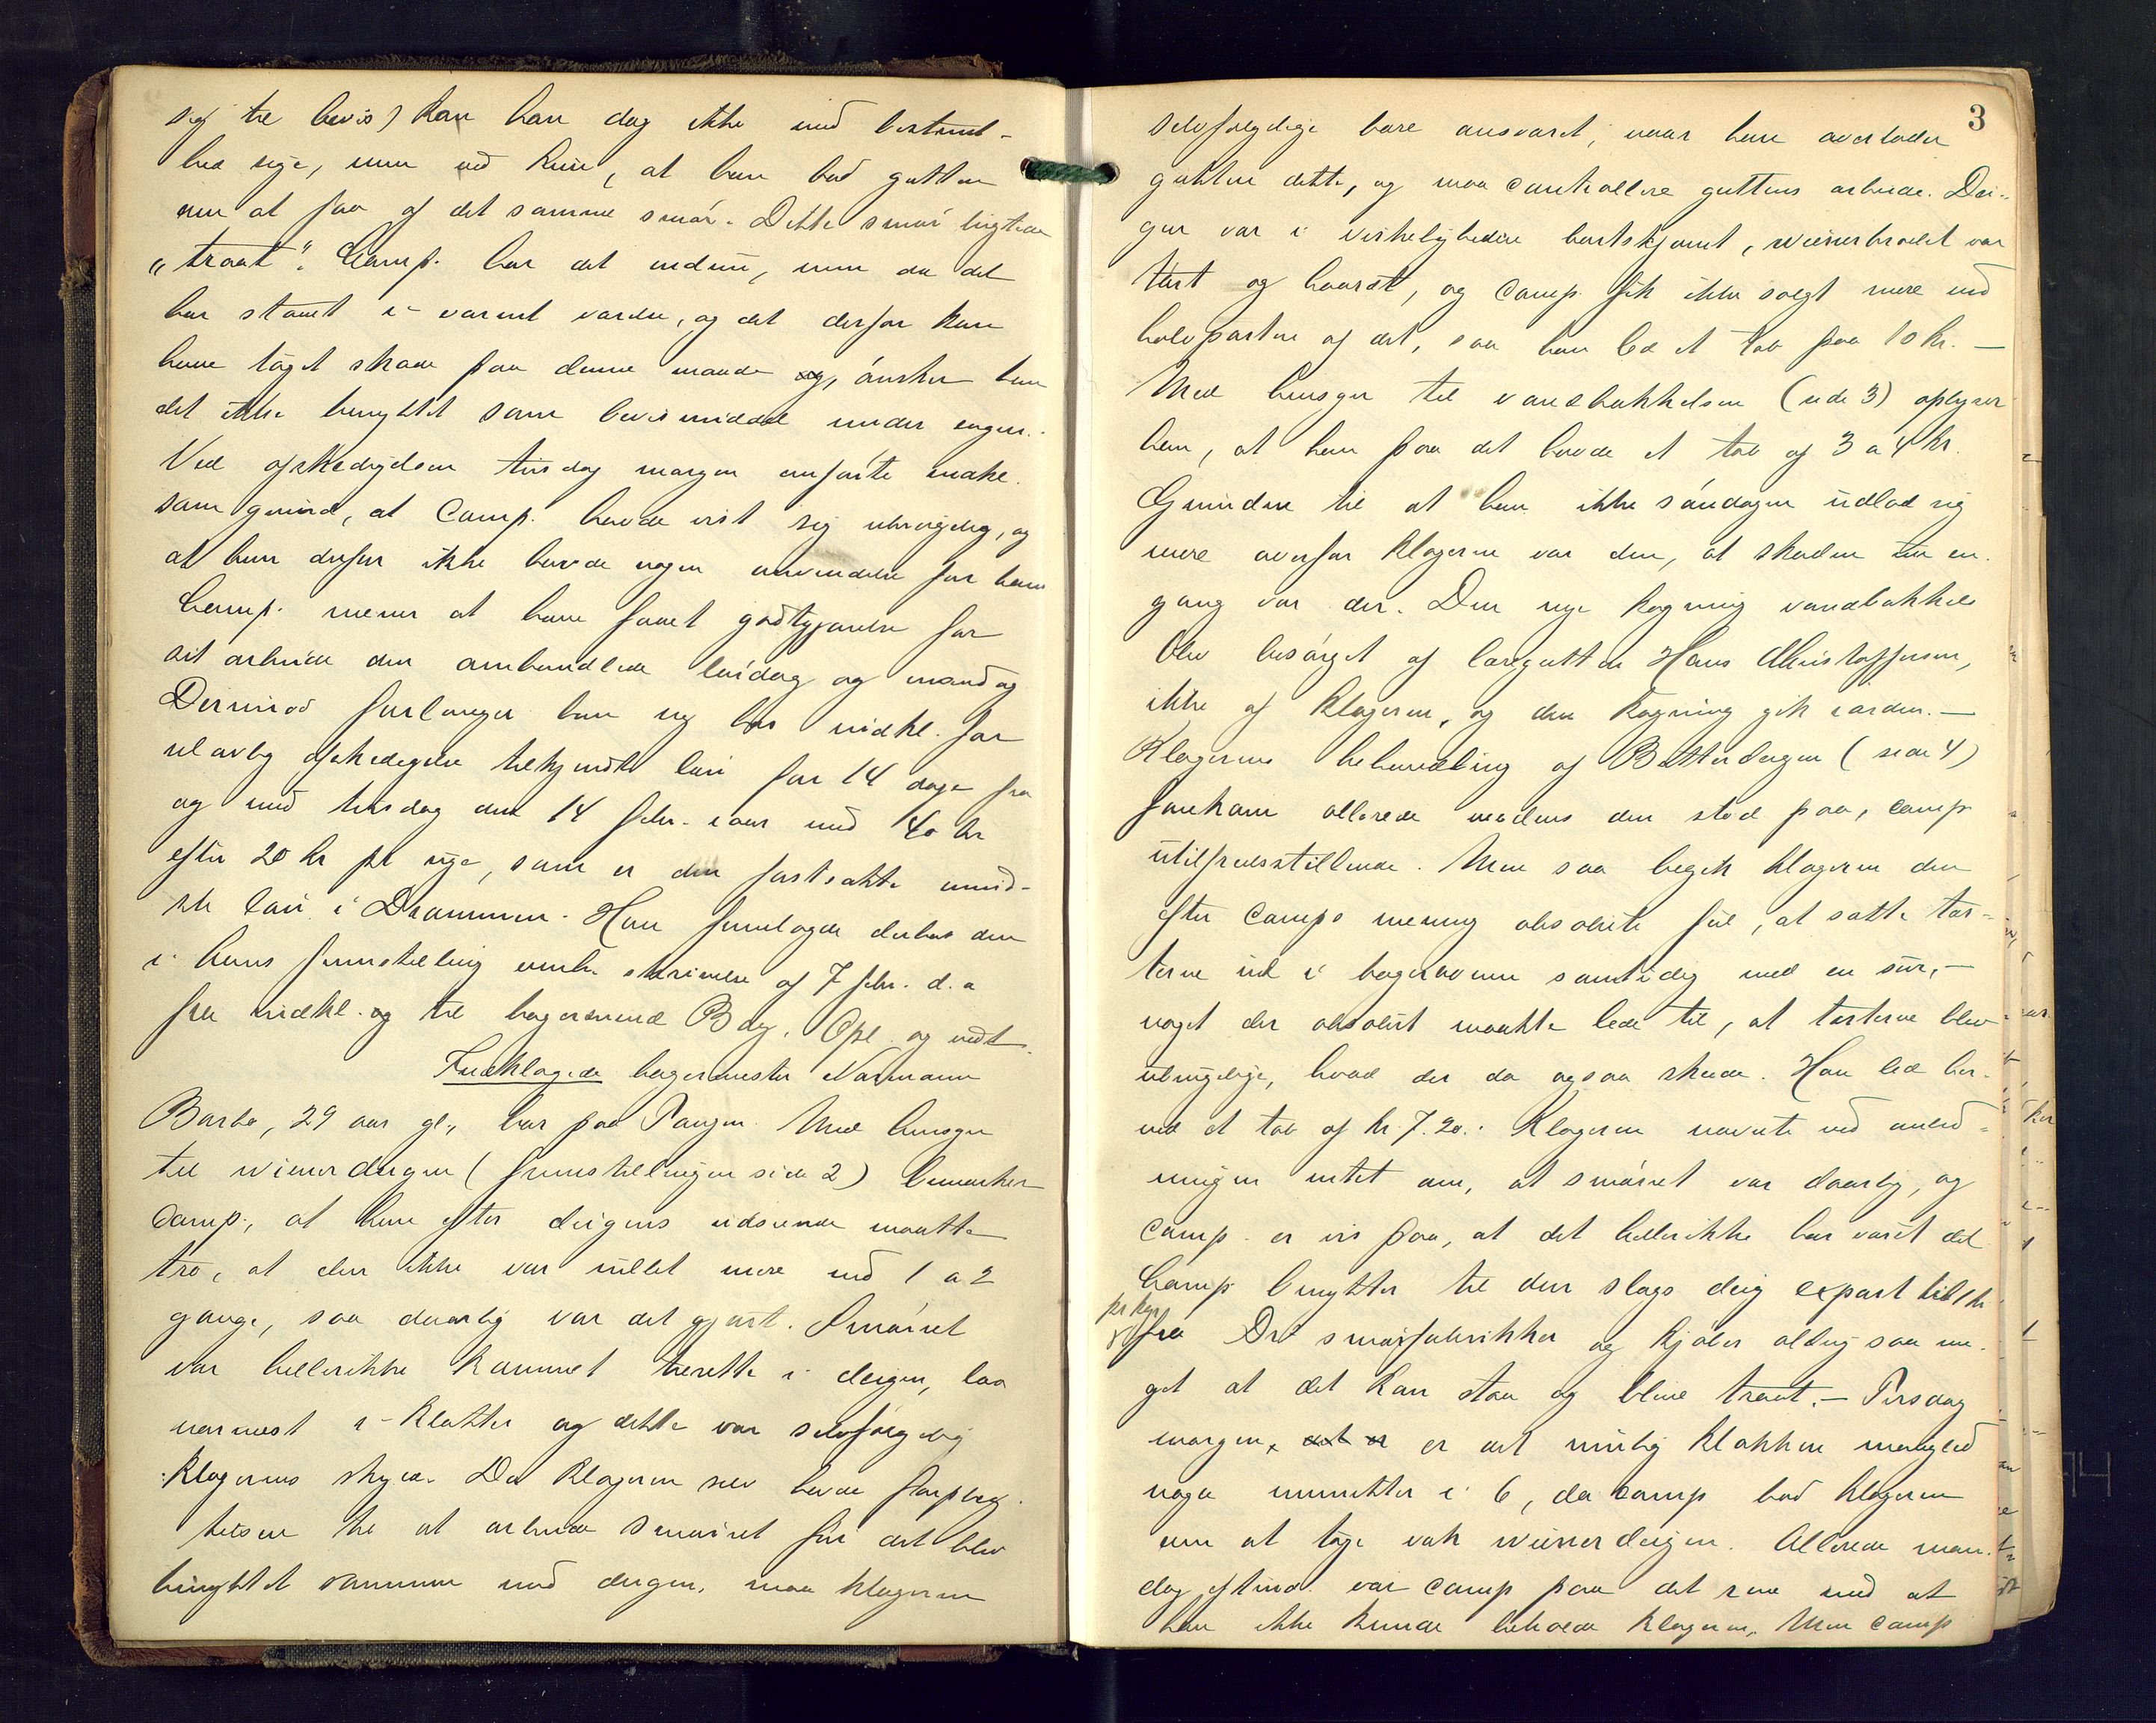 sig til bevis) kan han dog ikke med bestemt-
hed sige, men ved kun, at han bad gutten
om at faa af det samme smør. Dette smør lugtede
„traat". Comp. har det endnu, men da det
har staaet i varmt værelse, og det derfor kan
have taget skade paa denne maade og, ønsker han
det ikke benyttet som bevismiddel under sagen.
Ved afskedigelsen tirsdag morgen anførte indkl.
som grund, at Comp. havde vist sig ubrugelig, og
at han derfor ikke havde nogen anvendelse for ham
Comp. mener at have faaet godtgjørelse for
sit arbeide den omhandlede lørdag og mandag
Derimod forlanger han sig hos indkl. for
ulovlig afskedigelse tilkjendt løn for 14 dage fra
og med tirsdag den 14 febr. iaar med 40 kr
efter 20 kr pr uge, som er den fastsatte mind-
ste løn i Drammen. Han fremlagde derhos den
i hans fremstilling omh. skrivelse af 7 febr. d.a
fra indkl. og til bagersvend Bay. Opl. og vedt.
Indklagede bagermester Normann
Barbo, 29 aar gl., bor paa Tangen. Med hensyn
til wienerdeigen (fremstillingen side 2) bemærker
Comp., at han efter deigens udseende maatte
tro, at den ikke var rullet mere end 1 a 2
gange, saa daarlig var det gjort. Smørret
var hellerikke kommet tilrette i deigen, laa
nærmest i klatter og dette var selvfølgelig
klagerens skyld. Da klageren selv havde forplig-
telsen til at arbeide smørret før det blev
benyttet sammen med deigen, maa klageren
3
selvfølgelige bære ansvaret, naar han overlader
gutten dette, og maa controllere guttens arbeide. Dei-
gen var i virkeligheden bortskjæmt, wienerbrødet var
tørt og haardt, og Comp. fik ikke solgt mere end
halvparten af det, saa han led et tab paa 10 kr. —
Med hensyn til vandbakkelsen (side 3) oplyser
han, at han paa det havde et tab af 3 a 4 kr.
Grunden til at han ikke søndagen udlod sig
mere overfor klageren var den, at skaden en
gang var der. Den nye kogning vandbakkels
blev besørget af læregutten Hans Christoffersen,
ikke af klageren, og den kogning gik iorden. —
Klagerens behandling af Butterdeigen (side 4)
forekom allerede medens den stod paa, comp
utilfredsstillende. Men saa begik klageren den
efter comps mening absolute feil, at sætte tær-
terne ind i bagerovnen samtidig med en
noget der absolut maatte lede til, at tærterne blev
ubrugelige, hvad der da ogsaa skede. Han led her-
ved et tab af kr 7.20. Klageren nævnte ved anled-
ningen intet om, at smørret var daarlig, og
comp. er vis paa, at det hellerikke har været det
Comp benytter til den slags deig export til 1 kr
pr kgr
fra Dr smørfabrikker og kjøber aldrig saa me-
get at det kan staa og blive traat. — Tirsdag
morgen, det er er det mulig klokken manglede
nogle minutter i 6, da comp bad klageren
om at tage væk wienerdeigen. Allerede man-
dag eftmd. var comp paa det rene med at
han ikke kunde beholde klageren. Men comp